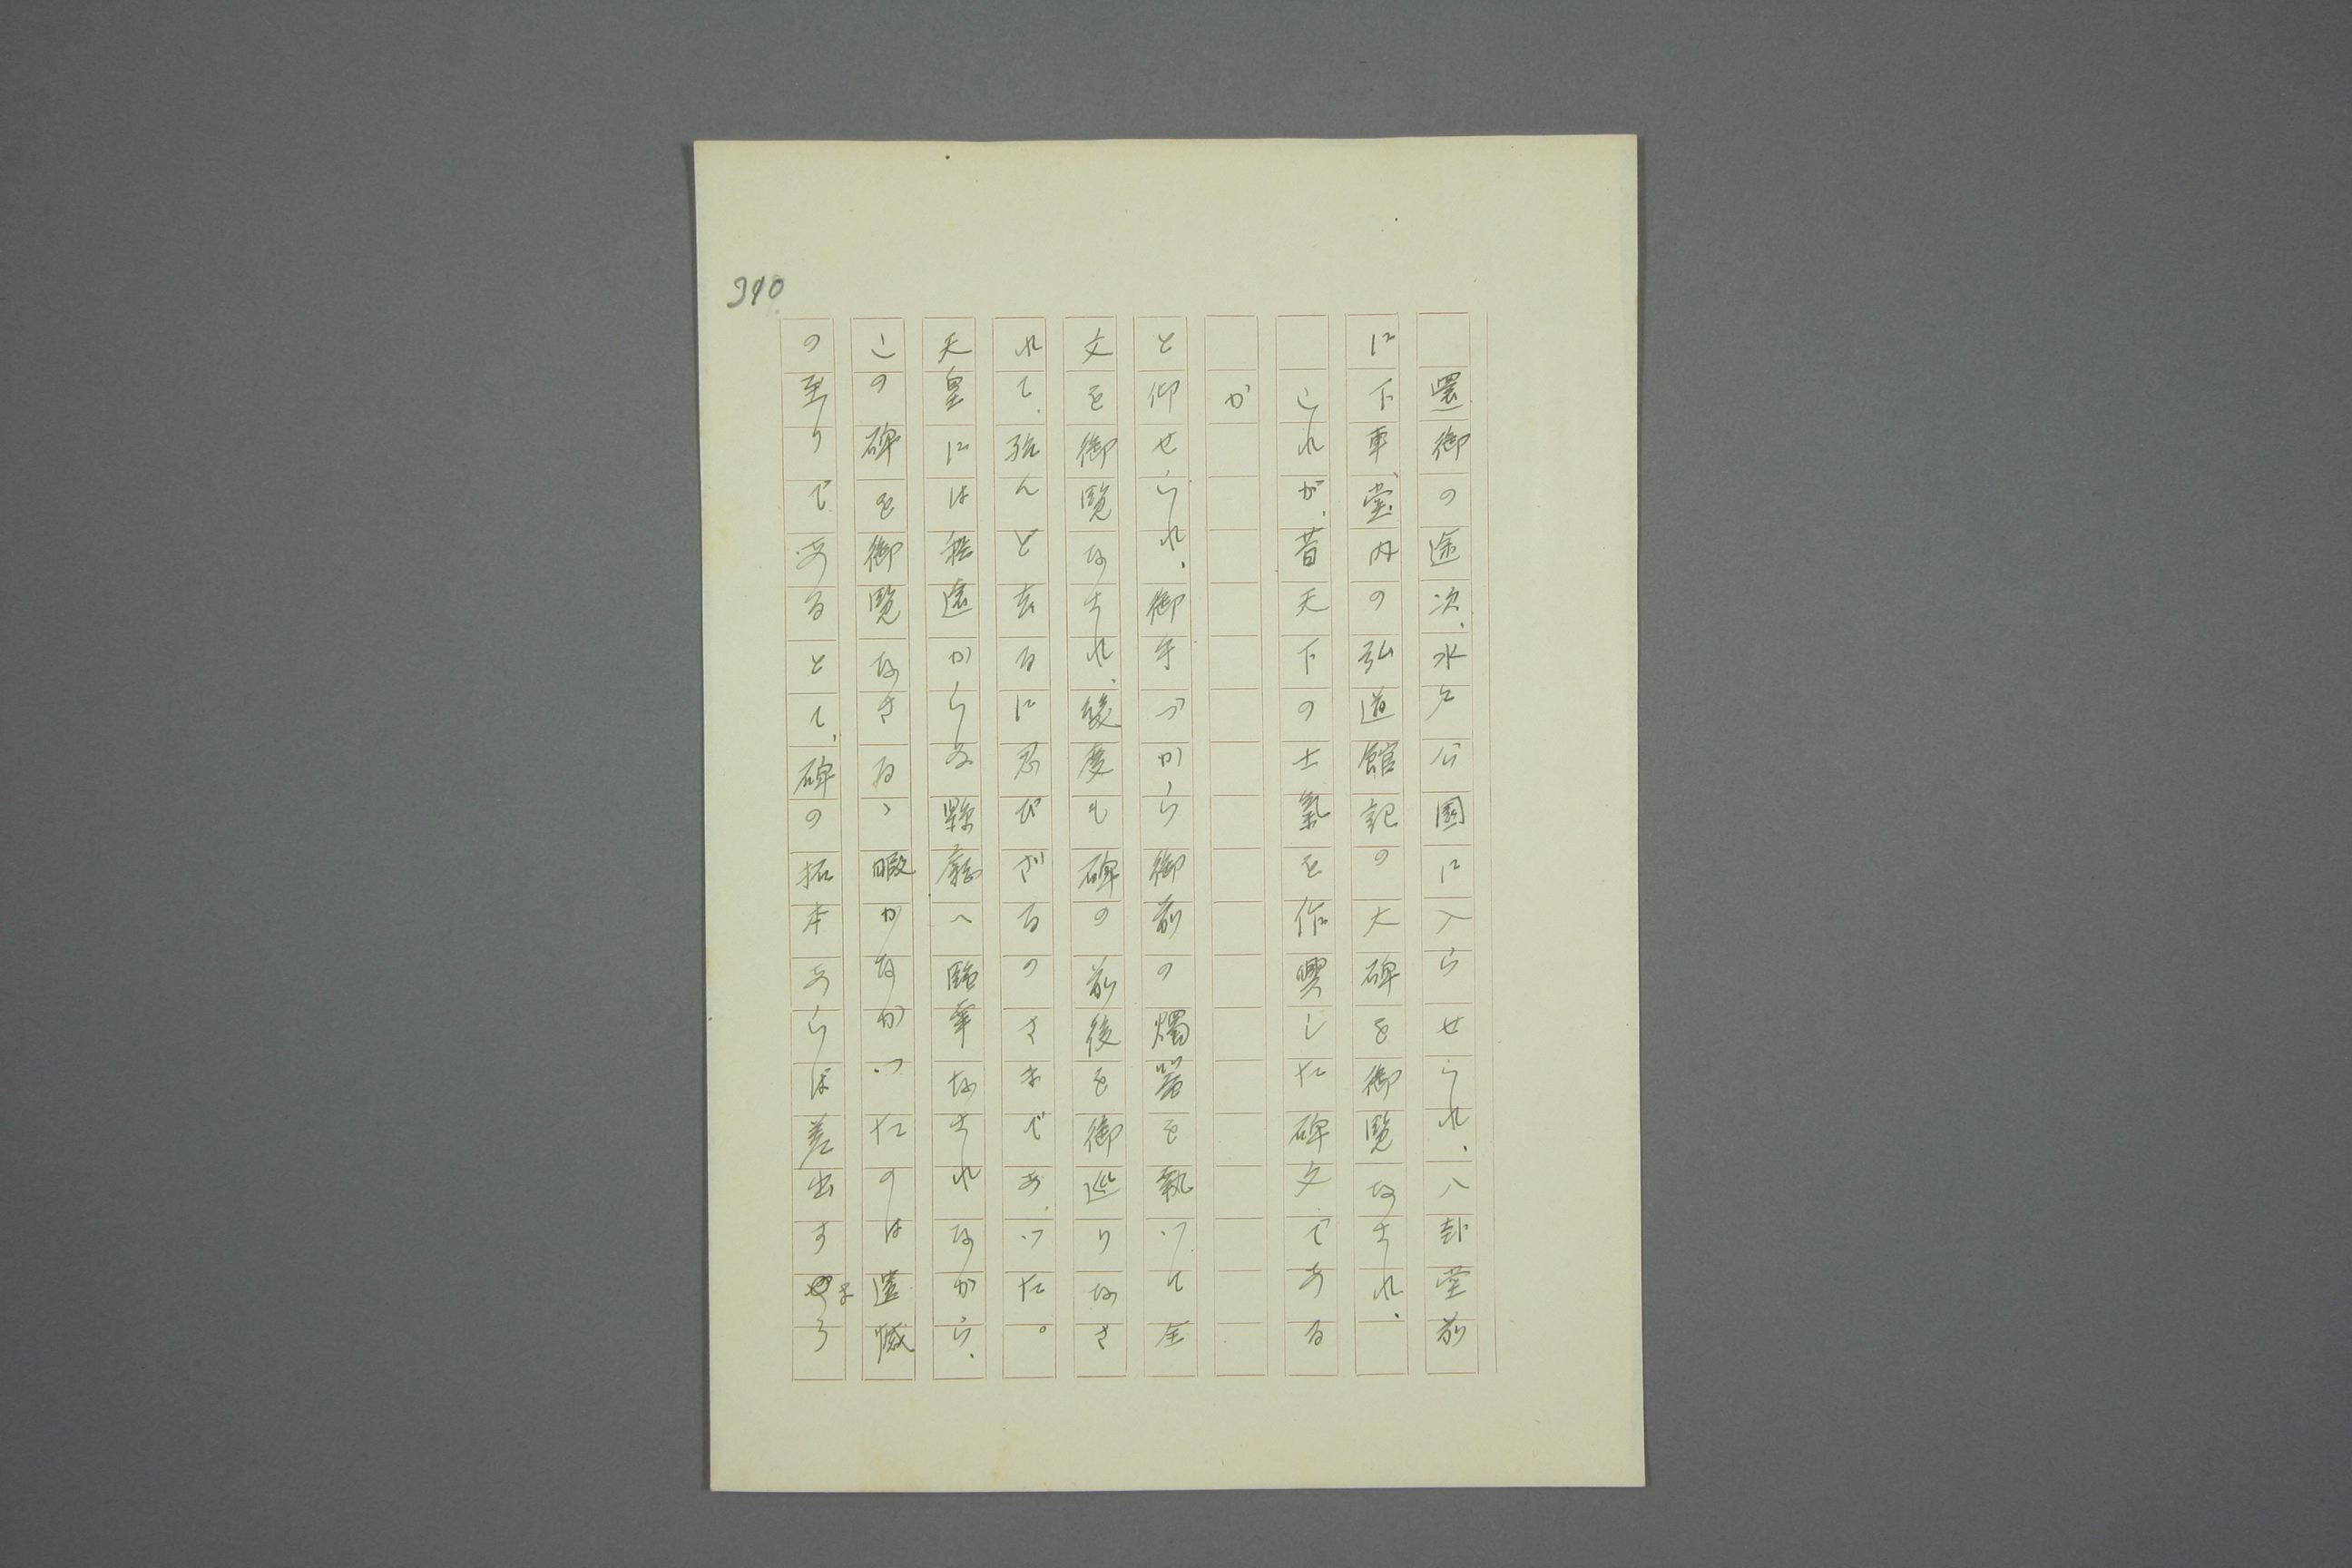 還御の途次、水戸公園に入らせられ、八卦堂前
に下車、堂内の弘道館記の大碑を御覧なされ、
これが、昔天下の士氣を作興した碑文である
か
と仰せられ、御手づから御前の燭器を執つて全
文を御覧なされ、幾度も碑の前後を御巡りなさ
れて、殆んど去るに忍びざるのさまであつた。
天皇には程遠からぬ縣廳へ臨幸なされながら、
この碑を御覧なさる、暇がなかつたのは遺憾
の至りであるとて、碑の拓本あらば差出すやう
390